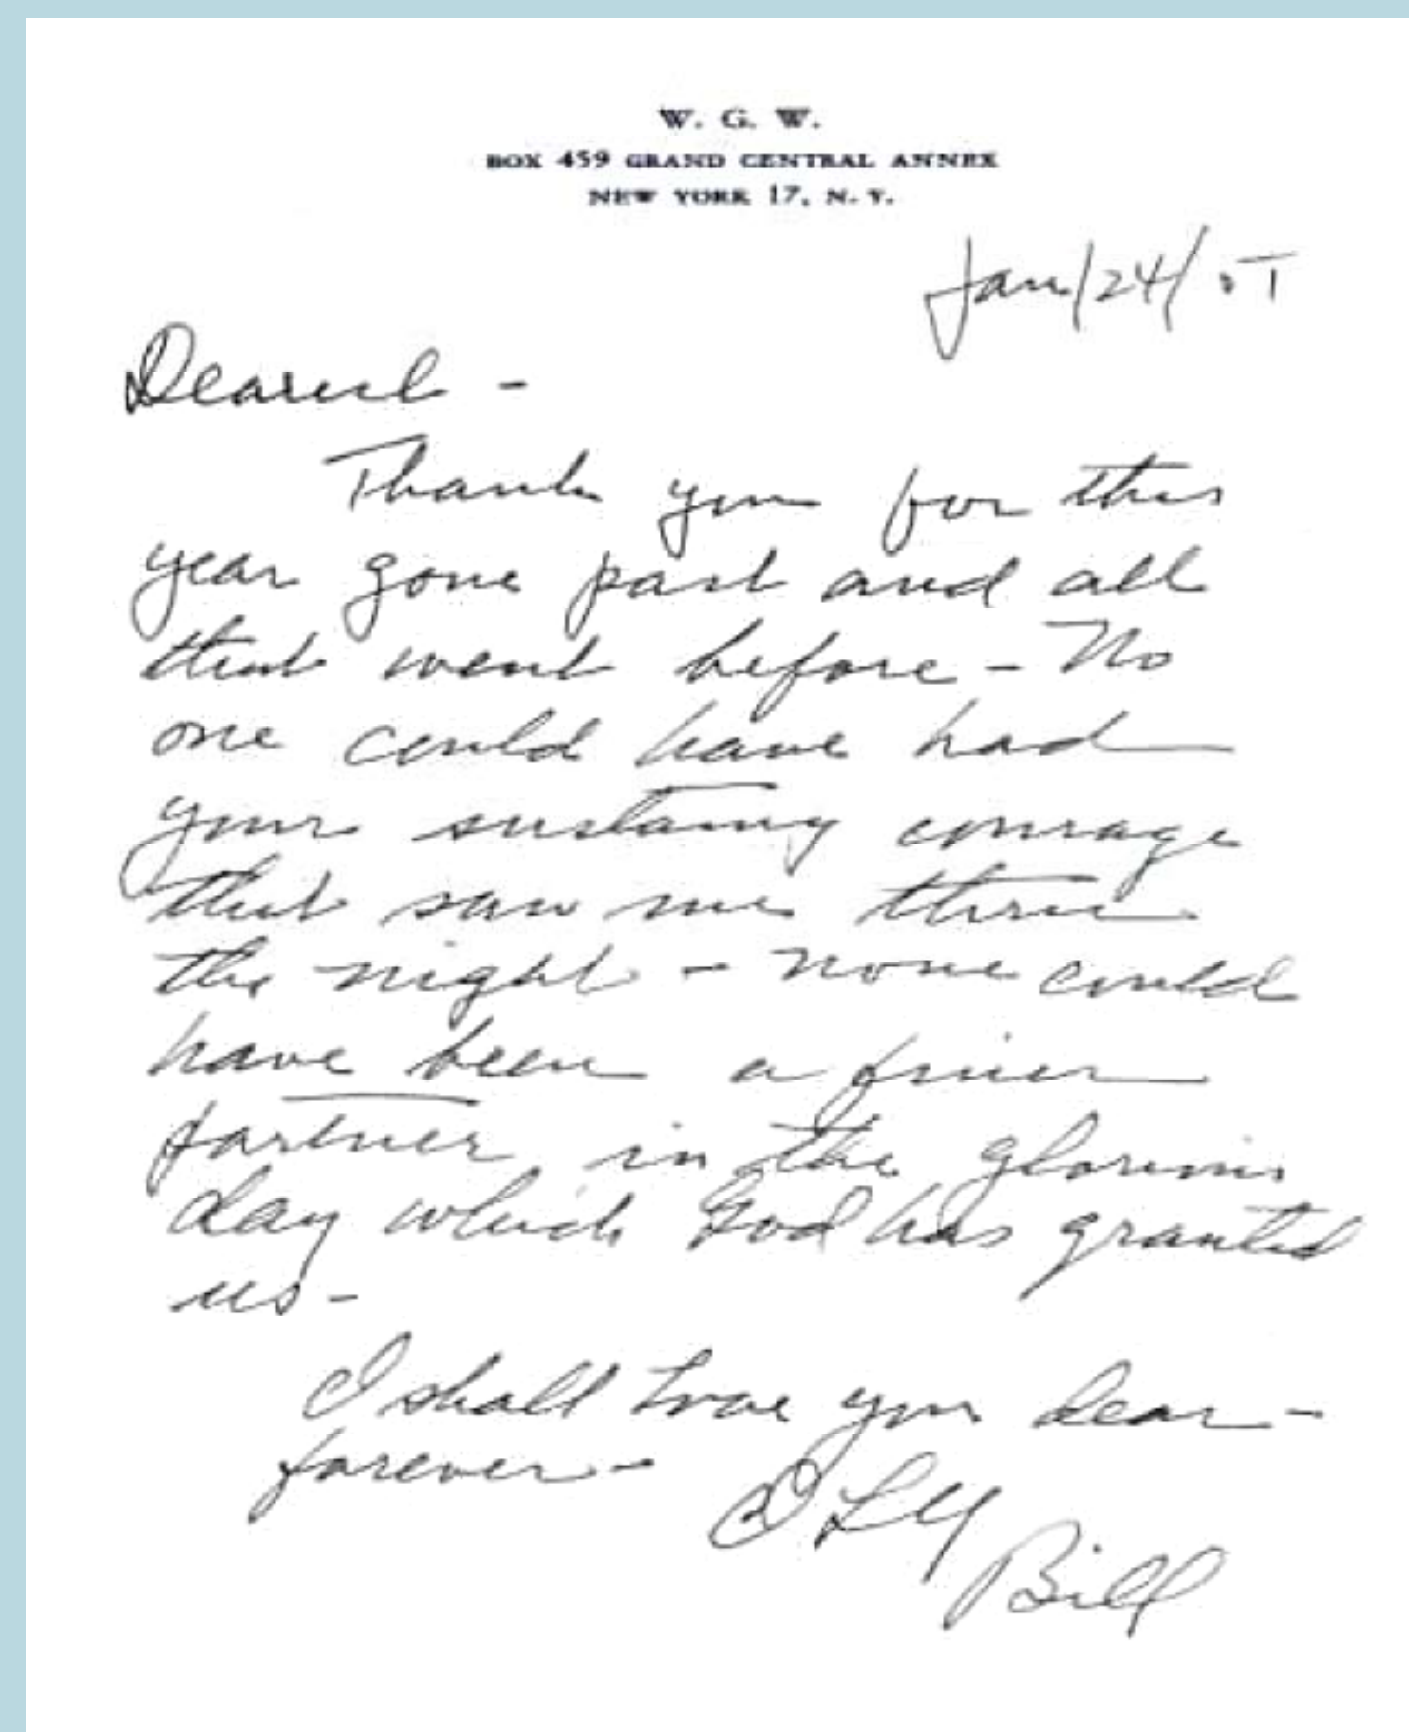 W. G. W.
BOX 459 GRAND CENTRAL ANNEX
NEW YORK 17, N. Y.
Jan/24/
Dearest -
Thank you for this
year gone past and all
that went before - No
one could have had
your sustaining courage
that saw me thru
the night - none could
have been a finer
partner in the glorious
day which God has granted
us -
I shall love you dear -
forever -
ILY
Bill